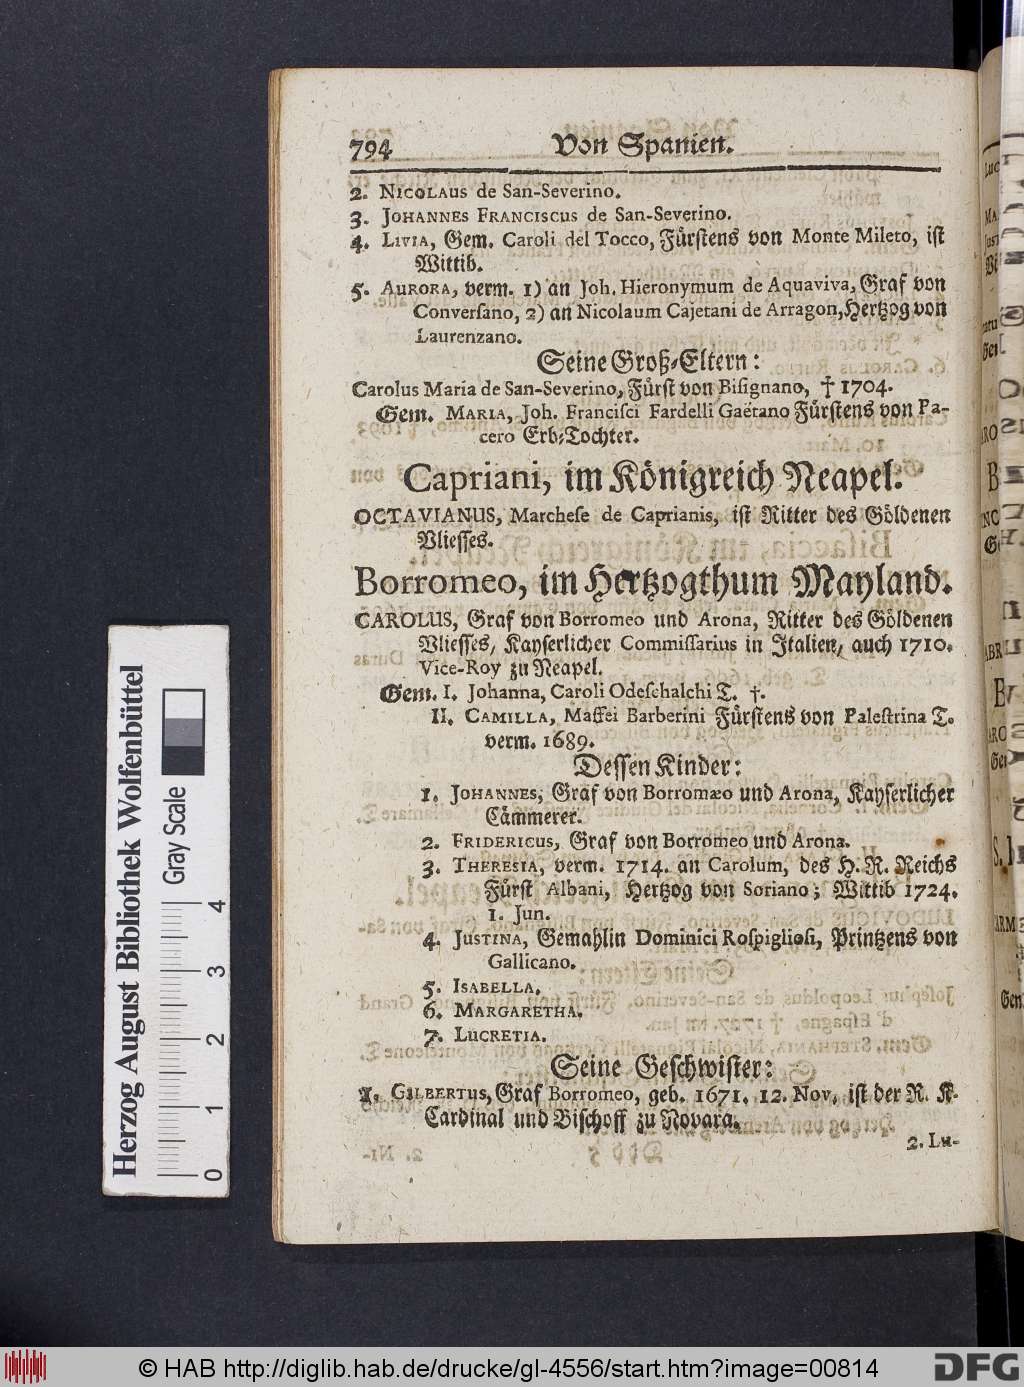 794 Von Spanien.
2. NICOLAUS de San-Severino.
3. JOHANNES FRANCISCUS de San-Severino.
4. LIVIA, Gem. Caroli del Tocco, Fürstens von Monte Mileto, ist
Wittib.
5. AURORA, verm. 1) an Joh. Hieronymum de Aquaviva, Graf von
Conversano, 2) an Nicolaum Cajetani de Arragon, Hertzog von
Laurenzano.
Seine Groß-Eltern:
Carolus Maria de San-Severino, Fürst von Bisignano, † 1704.
Gem. MARIA, Joh. Francisci Fardelli Gaëtano Fürstens von Pa-
cero Erb-Tochter.
Capriani, im Königreich Neapel.
OCTAVIANUS, Marchese de Caprianis, ist Ritter des Göldenen
Vliesses.
Borromeo, im Hertzogthum Mayland.
CAROLUS, Graf von Borromeo und Arona, Ritter des Göldenen
Vliesses, Kayserlicher Commissarius in Italien, auch 1710.
Vice-Roy zu Neapel.
Gem. I. Johanna, Caroli Odeschalchi T. †.
II. CAMILLA, Maffei Barberini Fürstens von Palestrina T.
verm. 1689.
Dessen Kinder:
1. JOHANNES, Graf von Borromæo und Arona, Kayserlicher
Cämmerer.
2. FRIDERICUS, Graf von Borromeo und Arona.
3. THERESIA, verm. 1714. an Carolum, des H. R. Reichs
Fürst Albani, Hertzog von Soriano; Wittib 1724.
1. Jun.
4. JUSTINA, Gemahlin Dominici Rospigliosi, Printzens von
Gallicano.
5. ISABELLA.
6. MARGARETHA.
7. LUCRETIA.
Seine Geschwister:
1. GILBERTUS, Graf Borromeo, geb. 1671. 12. Nov. ist der R. K.
Cardinal und Bischoff zu Novara.
2. LU-
Herzog August Bibliothek Wolfenbüttel
Gray Scale
0 1 2 3 4
© HAB http://diglib.hab.de/drucke/gl-4556/start.htm?image=00814
DFG